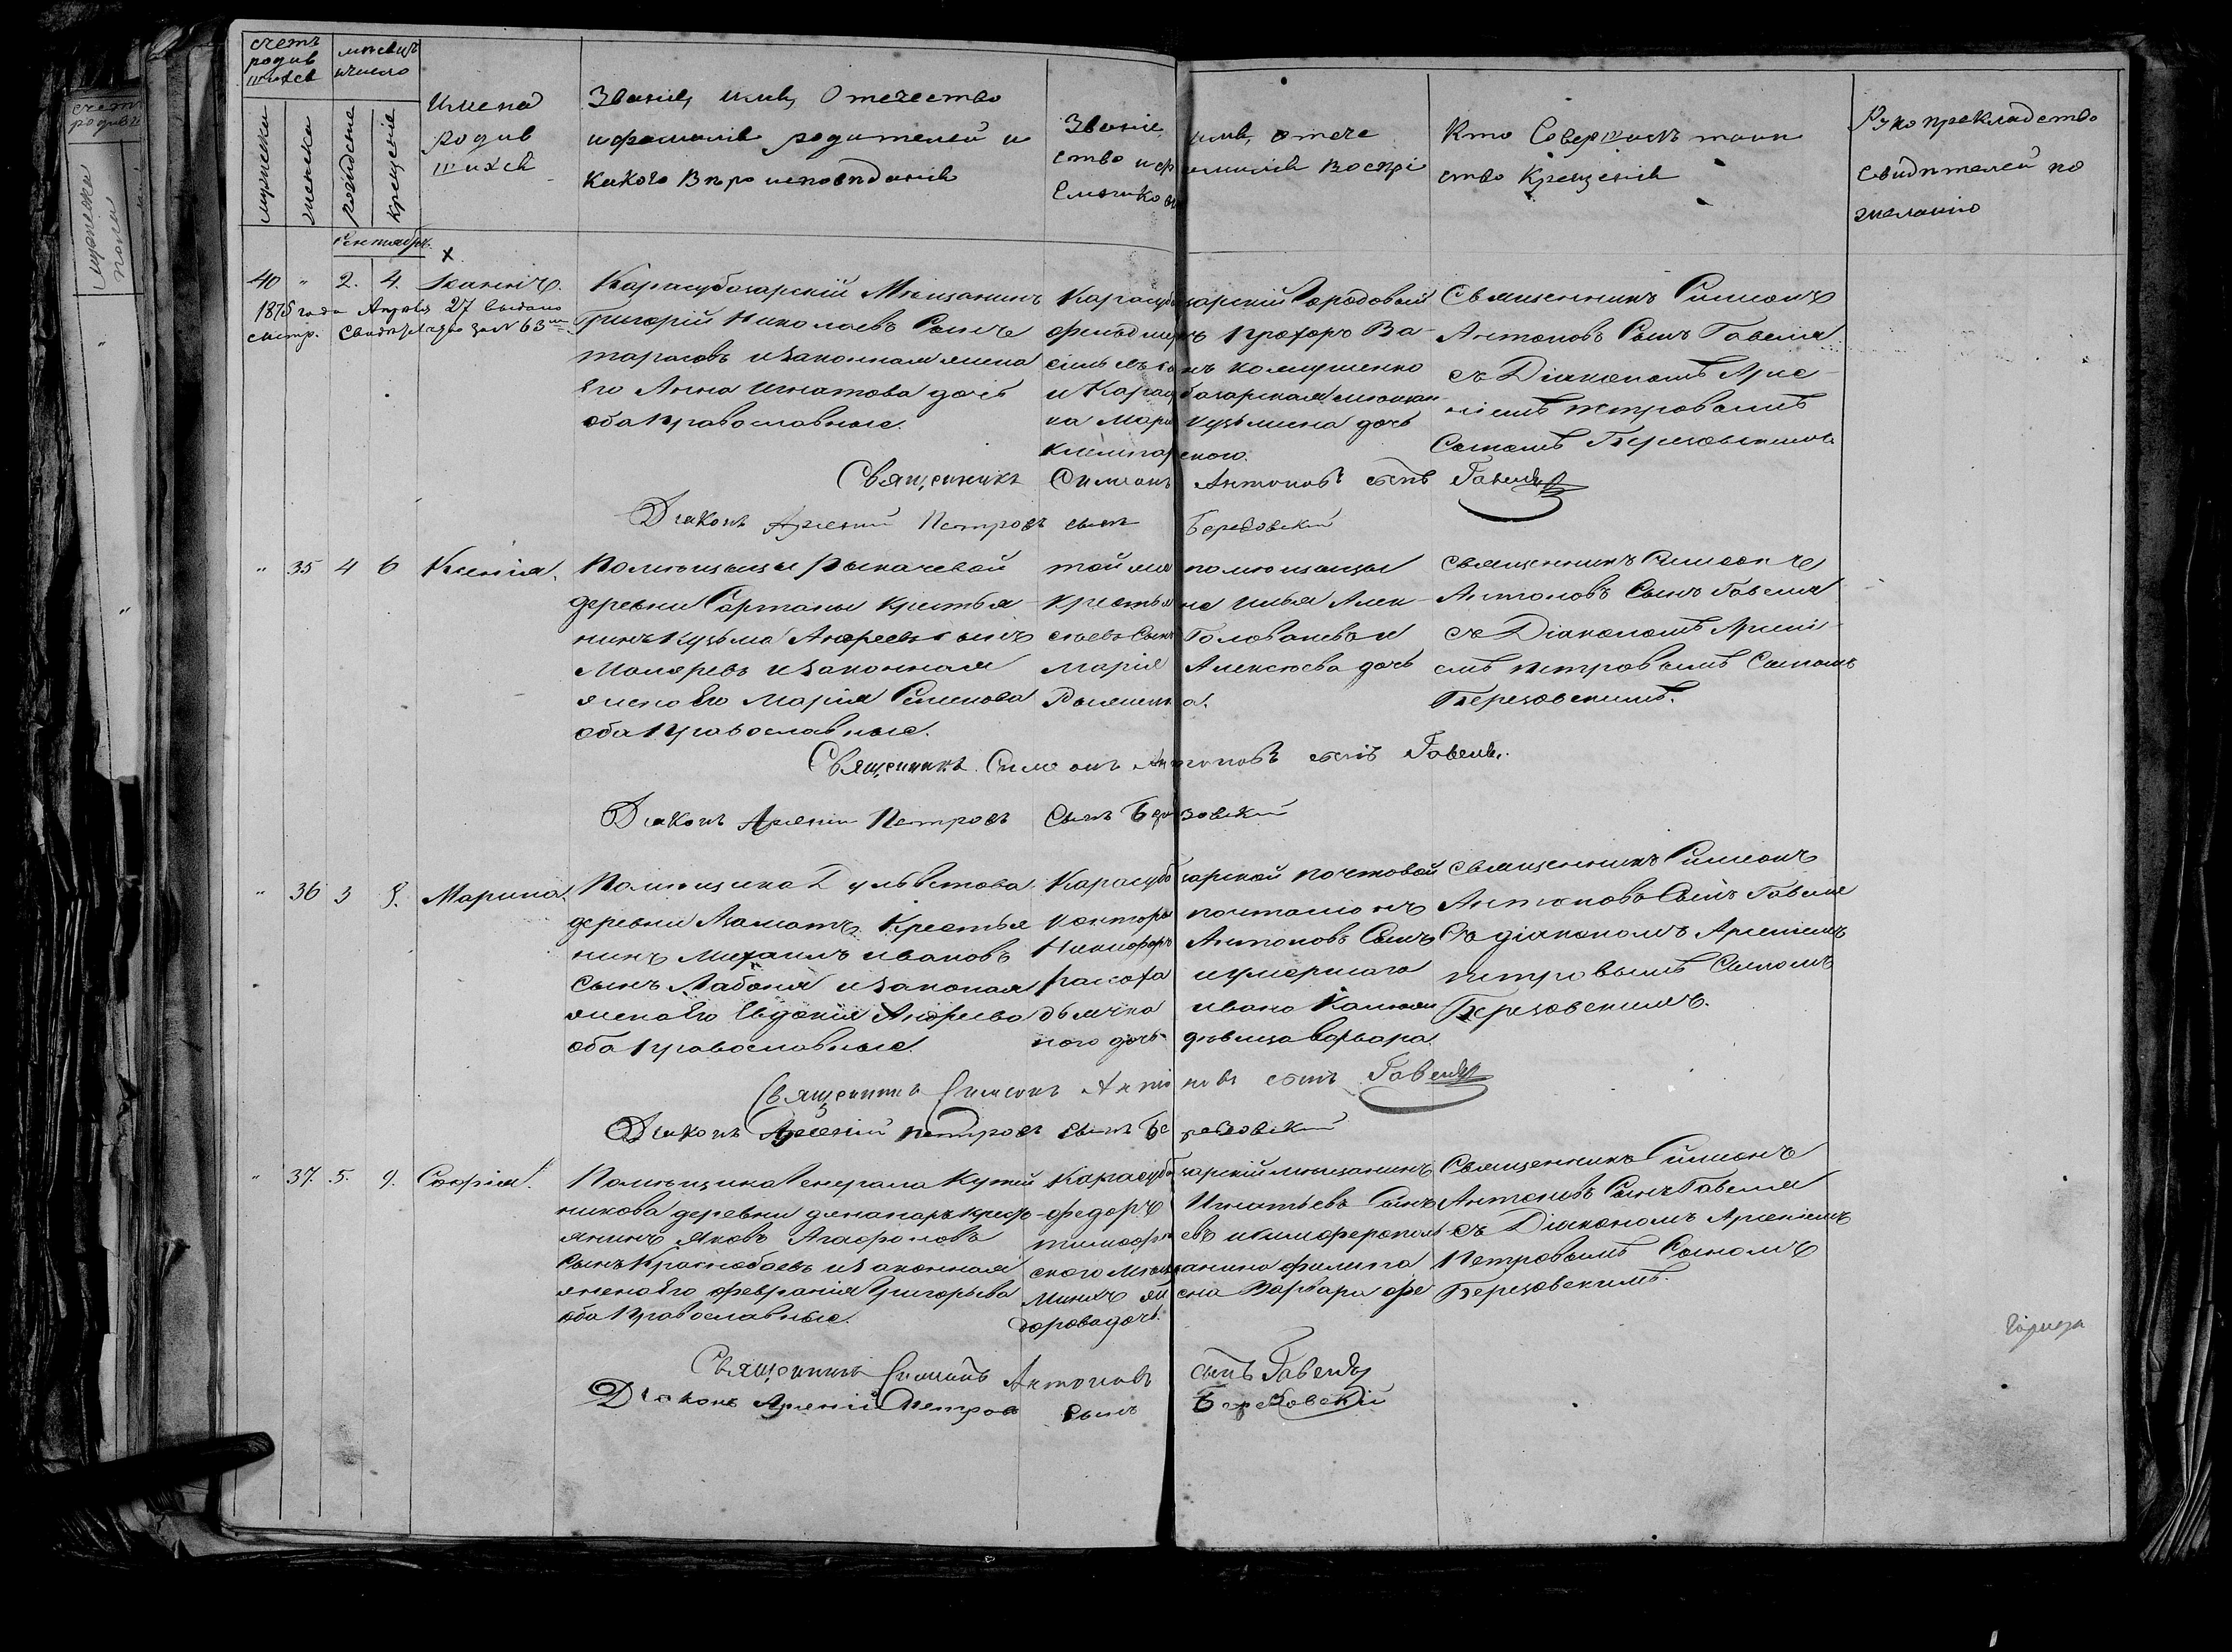 счетъ
родив
шихся
мѣсяцъ
и число
мужеска
женска
рожденія
крещенія
Имена
родив
шихся
Званіе, имя, Отечество
и фамилія родителей и
какого вѣроисповѣданія
Званіе, имя, отече
ство и фамилія воспрі
емниковъ
Кто Совершилъ таин
ство Крещенія
Рукоприкладство
свидѣтелей по
желанію
Сентябрь.
40 " 2. 4. Іоаннъ.
1875 года Апрѣля 27 выдано
метр. Свидѣтельство за № 63
Карасубазарскій Мѣщанинъ
Григорій Николаевъ Сынъ
Тарасовъ и законная жена
Его Анна Игнатова дочь
оба православные.
Карасубазарскій Городовой
фельдшеръ Прохоръ Ва-
сильевъ сынъ Колмушенко
и Карасубазарская мѣщан
ка Марія Кузьмина дочь
Священникъ Симеонъ
Антоновъ Сынъ Гавеля
съ Діакономъ Арсе
ніемъ Петровымъ
Сыномъ Березовскимъ
Священникъ Симеонъ Антоновъ сынъ Гавеля
Діаконъ Арсеній Петровъ сынъ Березовскій
" 35 4 6 Ксенія.
Помѣщицы Рыкачевой
деревни Сартаны Крестья
нинъ Кузьма Андреевъ сынъ
Маляревъ и законная
жена Его Марія Семенова
оба православные.
той же помѣщицы
крестьяне Илья Алек
сѣевъ Сынъ Голованевъ и
Марія Алексѣева дочь
Священникъ Симеонъ
Антоновъ Сынъ Гавеля
съ Діакономъ Арсені
емъ Петровымъ Сыномъ
Березовскимъ.
Священникъ Симеонъ Антоновъ сынъ Гавеля.
Діаконъ Арсеній Петровъ Сынъ Березовскій
" 36 3 8. Марина.
Помѣщика Дульветова
деревни Азаматъ Крестья
нинъ Михаилъ Ивановъ
Сынъ Лабоня и законая
жена Его Евдокія Андреева
оба православные.
Карасубазарской почтовой
конторы почталіонъ
Никифоръ Антоновъ Сынъ
и умершаго
дьячка Ивана
дочь дѣвица Варвара
Священникъ Симеонъ
Антоновъ Сынъ Гавеля
Съ діакономъ Арсеніемъ
Петровымъ Сыномъ
Березовскимъ.
Священникъ Симеонъ Антоновъ сынъ Гавеля
Діаконъ Арсеній Петровъ сынъ Березовскій
" 37. 5. 9. Софія.
Помѣщика Генерала Кутей
никова деревни кресть
янинъ Яковъ Агафоновъ
Сынъ Краснобаевъ и законная
жена Его Февронія Григорьева
оба православные.
Карасубазарскій мѣщанинъ
Федоръ Игнатьевъ Сынъ
Тимофеевъ и Симферополь
ского Мѣщанина Филипа
Минихъ жена Варвара Фе
дорова дочь.
Священникъ Симеонъ
Антоновъ Сынъ Гавеля
съ Діакономъ Арсеніемъ
Петровымъ Сыномъ
Березовскимъ.
Священникъ Симеонъ Антоновъ сынъ Гавеля
Діаконъ Арсеній Петровъ Сынъ Березовскій